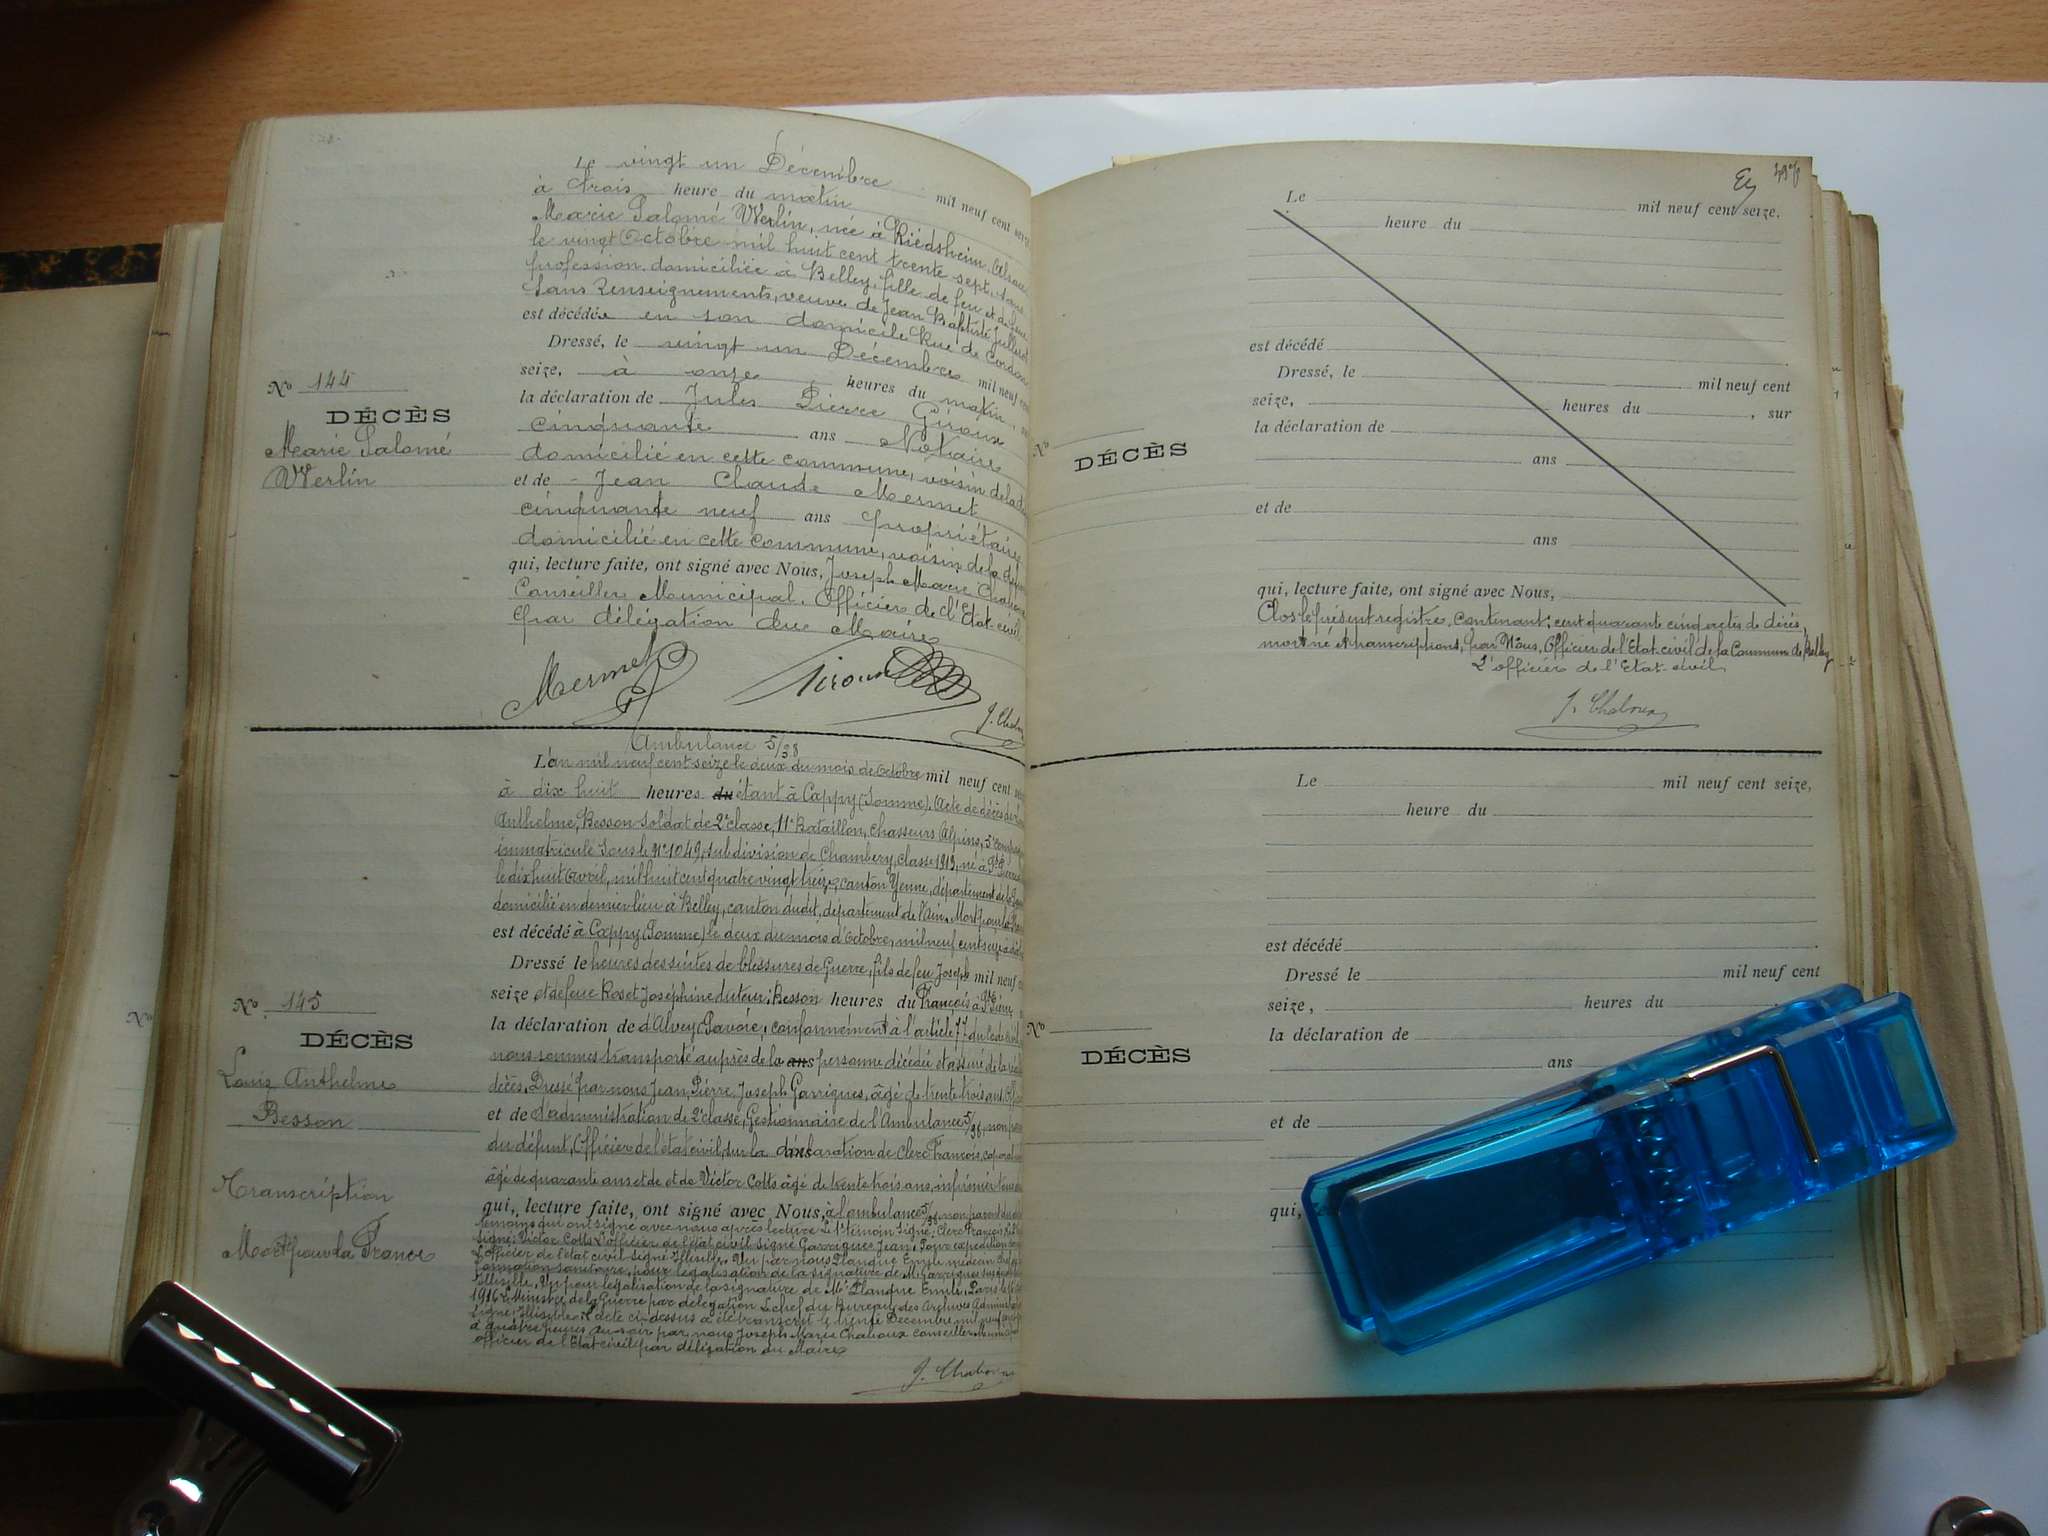 Le vingt un Décembre mil neuf cent seize
à trois heure du matin
Marie Salomé Werlin, née à Riedsheim, Alsace
le vingt Octobre mil huit cent trente sept, sans
profession, domiciliée à Belley, fille de feu et de feue
sans renseignements, veuve de Jean Baptiste
est décédée en son domicile Rue de
Dressé, le vingt un Décembre mil neuf cent
seize, à onze heures du matin
la déclaration de Jules Pierre Giroux
cinquante ans Notaire
domicilié en cette commune, voisin de la
et de - Jean Claude Mermet
cinquante neuf ans propriétaire
domicilié en cette commune, voisin de la
qui, lecture faite, ont signé avec Nous, Joseph Marie
Conseiller Municipal, Officier de l'Etat-civil
par délégation du Maire
Mermet Giroux
Nº 144
DÉCÈS
Marie Salomé
Werlin
Ambulance 5/38
L'an mil neuf cent seize le deux du mois de Octobre mil neuf cent
à dix huit heures du étant à Cappy (Somme), Acte de décès de
Anthelme, Besson soldat de 2e classe, 11e Bataillon, chasseurs Alpins, 5e
immatriculé sous le nº 1049, subdivision de Chambéry, classe 1913, né à St
le dix huit Avril, mil huit cent quatre vingt treize, canton Yenne, département de la
domicilié en dernier lieu à Belley, canton dudit, département de l'Ain. Mort pour la
est décédé à Cappy (Somme) le deux du mois d'Octobre, mil neuf cent seize à
Dressé le heures des suites de blessures de Guerre, fils de feu Joseph mil neuf
seize, et de feue Roset Joséphine tuteur: Besson heures du François à St Pierre
la déclaration de d'Alvey (Savoie), conformément à l'article 77 du Code civil
nous sommes transporté auprès de la ans personne décédée et assuré de la
décès. Dressé par nous Jean, Pierre, Joseph Garrigues, âgé de trente trois ans,
et de d'administration de 2e classe, Gestionnaire de l'Ambulance 5/38, non
du défunt, Officier de l'état civil, sur la déclaration de Clerc François, caporal
âgé de quarante ans et de et de Victor Cotts âgé de trente trois ans, infirmier
qui, lecture faite, ont signé avec Nous, à l'ambulance 5/38, non parent
témoins qui ont signé avec nous après lecture. Le 1er témoin signé: Clerc François,
signé: Victor Cotts. L'officier de l'état civil signé Garrigues Jean. Pour expédition
L'officier de l'état civil signé Illisible. Vu par nous Planque Emile médecin
formation sanitaire, pour légalisation de la signature de M. Garrigues
Illisible, Vu pour légalisation de la signature de Mr Planque Emile, Paris le
1916 Le Ministre de la Guerre par délégation Le chef du Bureau des Archives
signé: Illisible. L'acte ci-dessus a été transcrit le trente Décembre mil neuf cent
à quatre heures du soir par nous Joseph Marie conseiller Municipal
officier de l'Etat civil par délégation du Maire
Nº 145
DÉCÈS
Louis Anthelme
Besson
Transcription
Mort pour la France
Le mil neuf cent seize.
heure du
est décédé
Dressé, le mil neuf cent
seize, heures du , sur
la déclaration de
ans
et de
ans
qui, lecture faite, ont signé avec Nous,
Clos le présent registre, contenant: cent quarante cinq actes de décès,
mort né et transcriptions, par Nous, Officier de l'Etat civil de la Commune de Belley
L'officier de l'Etat-civil
Nº
DÉCÈS
Le mil neuf cent seize,
heure du
est décédé
Dressé le mil neuf cent
seize, heures du
la déclaration de
ans
et de
qui,
Nº
DÉCÈS